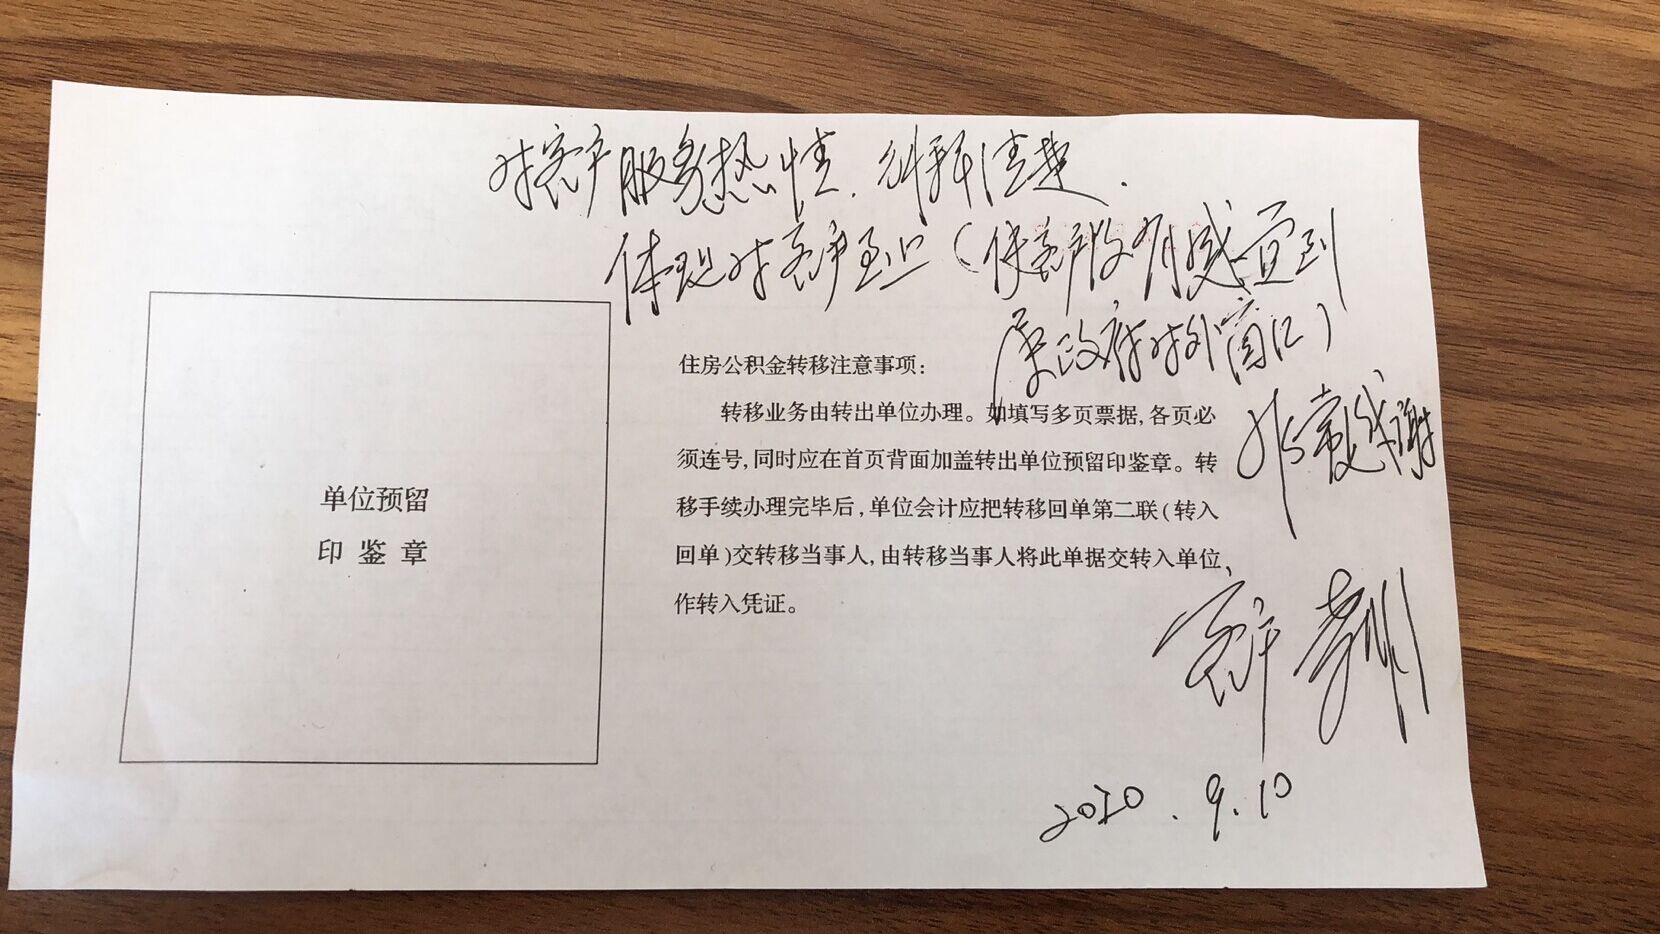 对客户服务热情、讲解清楚.
体现对客户至上(使客户没有感觉到
是政府对外窗口)
非常感谢
住房公积金转移注意事项:
转移业务由转出单位办理。如填写多页票据,各页必
须连号,同时应在首页背面加盖转出单位预留印鉴章。转
移手续办理完毕后,单位会计应把转移回单第二联(转入
回单)交转移当事人,由转移当事人将此单据交转入单位,
作转入凭证。
单位预留
印鉴章
客户
2020.9.10